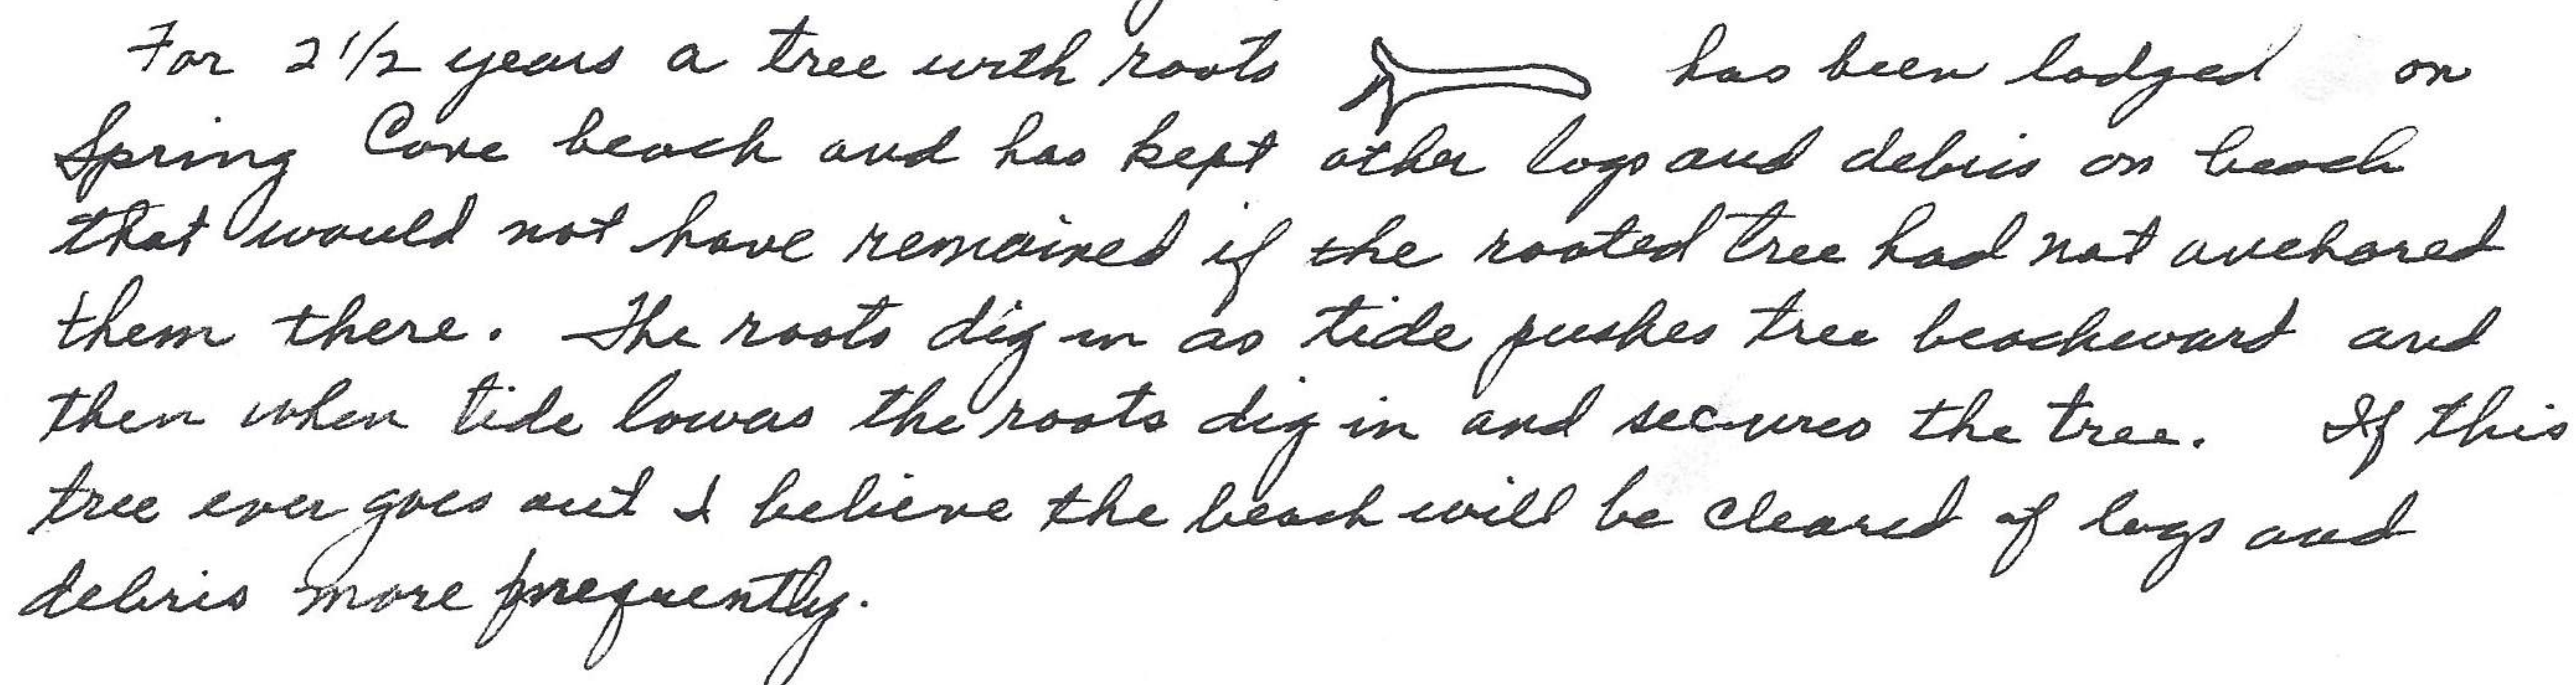 For 2 1/2 years a tree with roots has been lodged on
Spring Cove beach and has kept other logs and debris on beach
that would not have remained if the rooted tree had not anchored
them there. The roots dig in as tide pushes tree beachward and
then when tide lowers the roots dig in and secures the tree. If this
tree ever goes out I believe the beach will be cleared of logs and
debris more frequently.